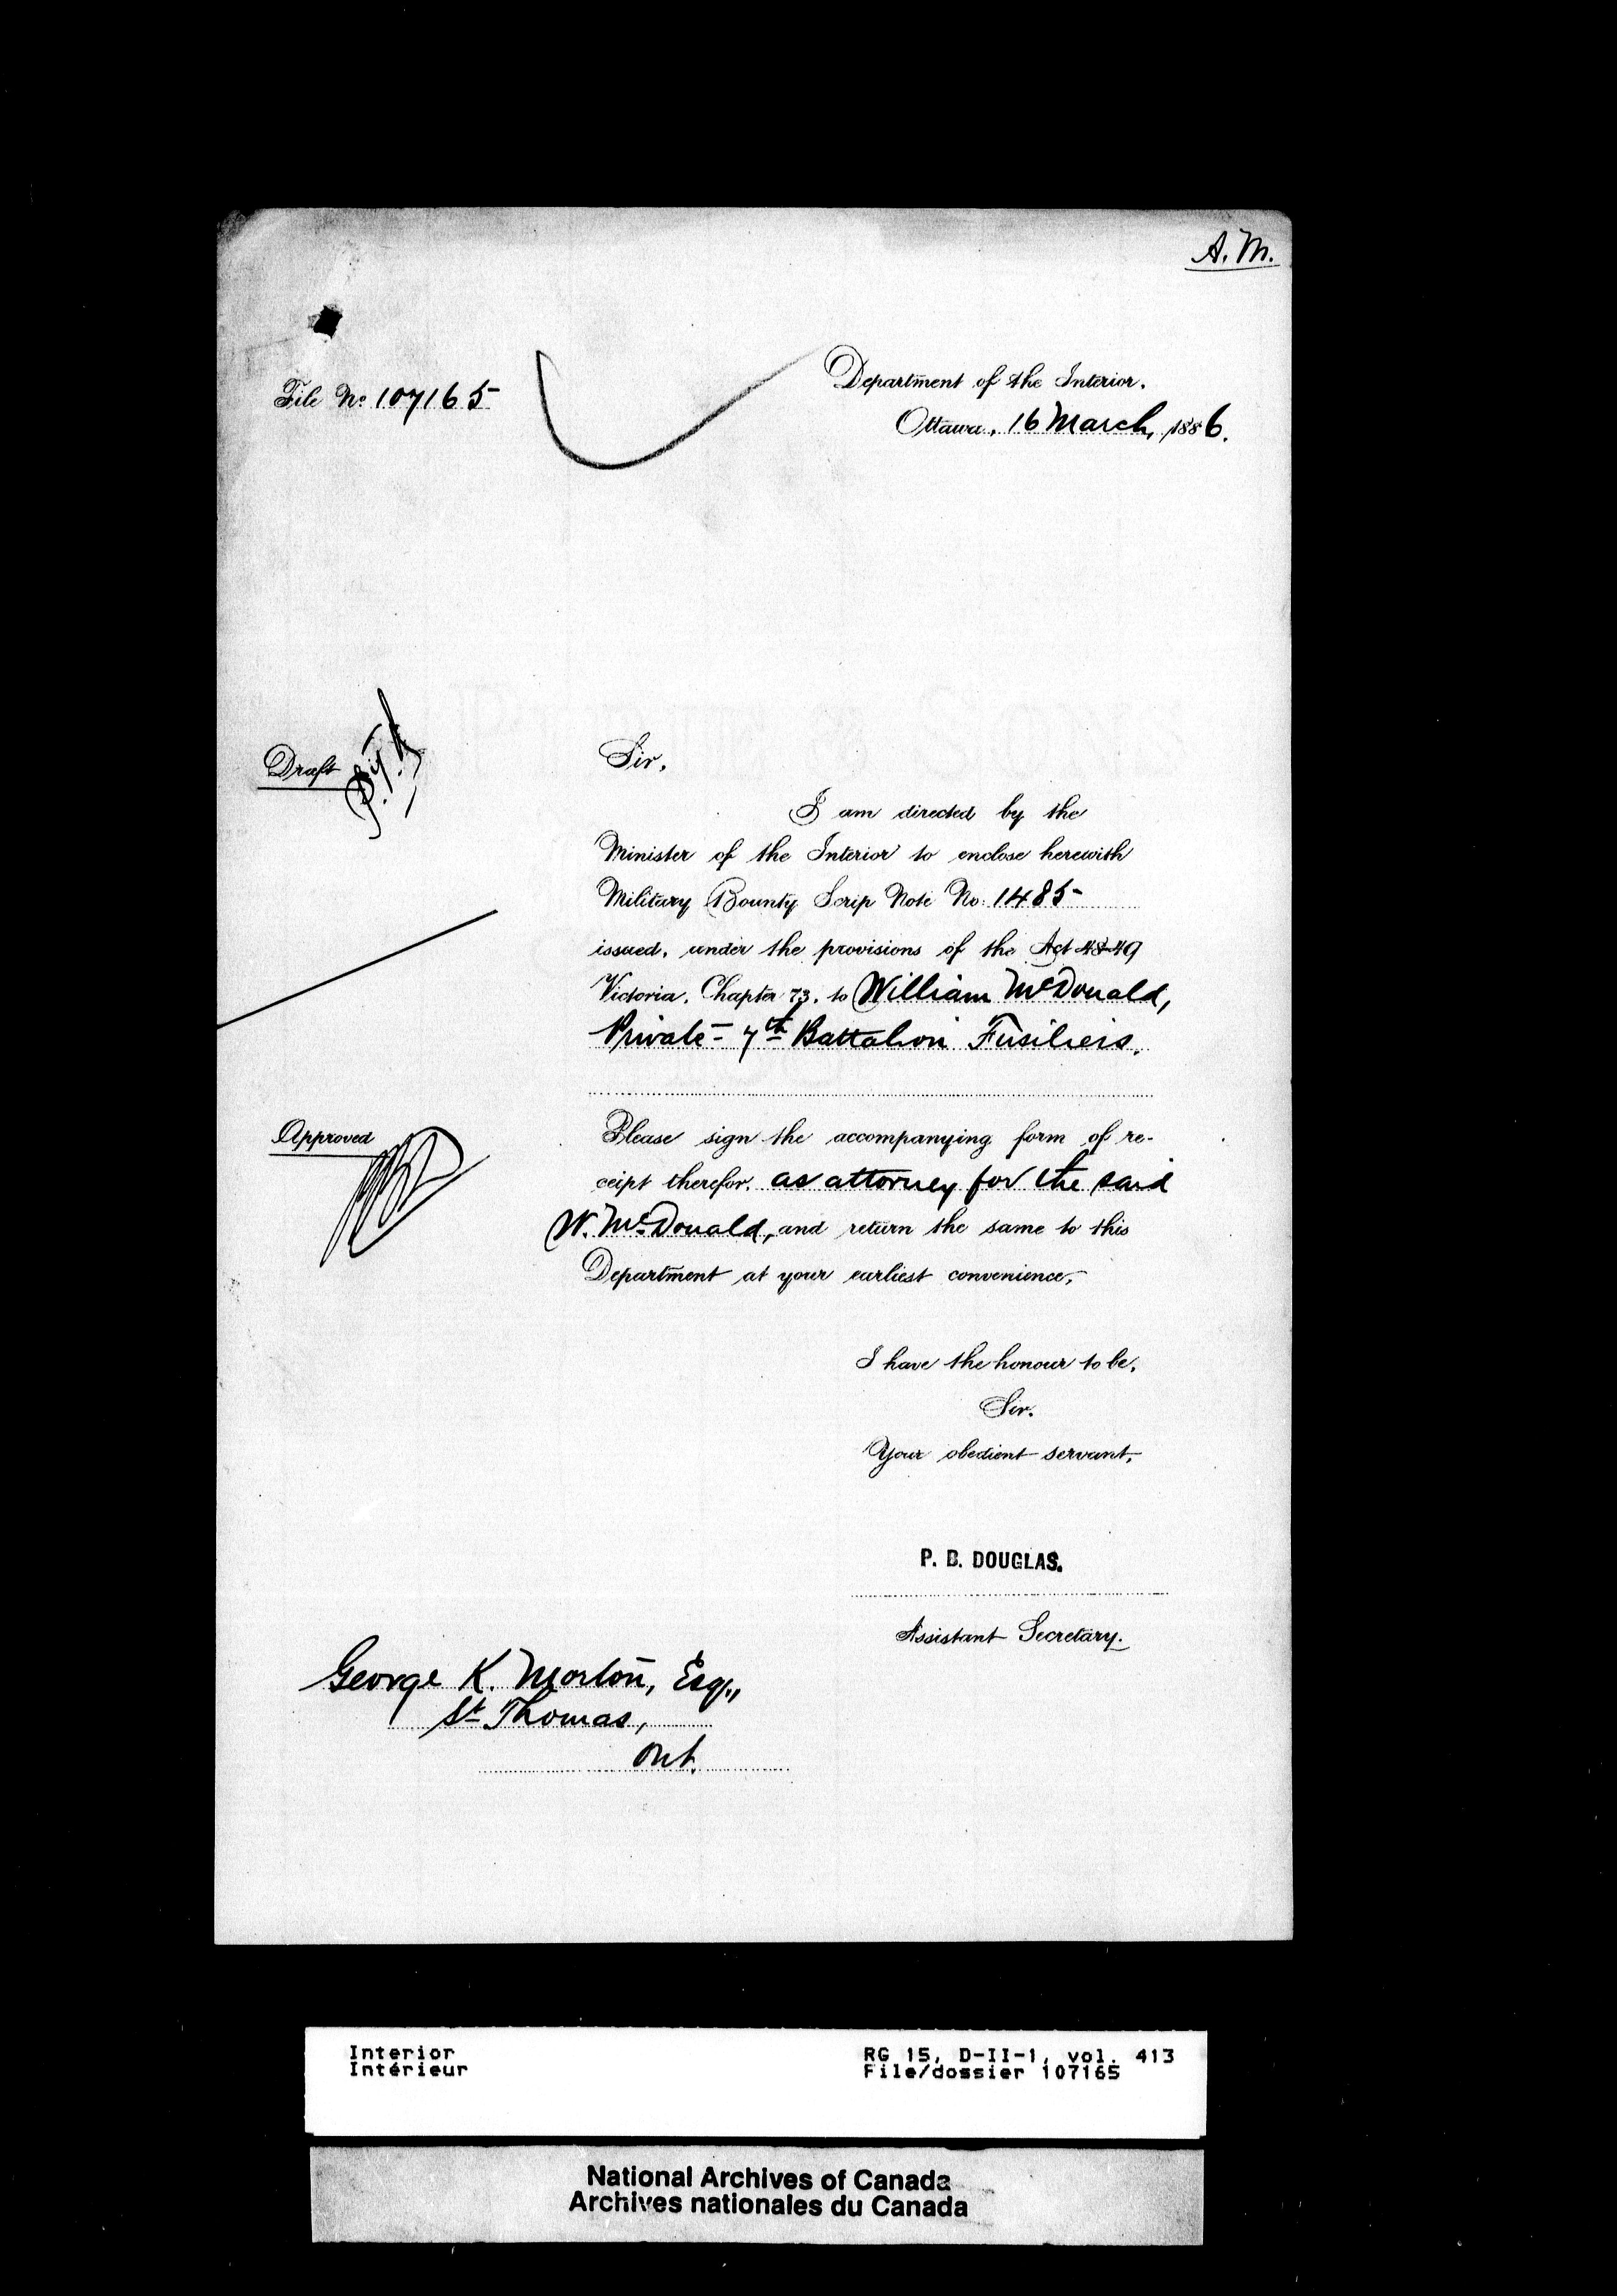 A. M.
File No 107165
Department of the Interior.
Ottawa, 16 March, 1886.
Draft
Sir,
I am directed by the
Minister of the Interior to enclose herewith
Military Bounty Scrip Note No. 1485
issued, under the provisions of the Act 48-49
Victoria, Chapter 73, to William McDonald,
Private - 7th Battalion Fusiliers.
Approved
Please sign the accompanying form of re-
ceipt therefor, as attorney for the said
W. McDonald, and return the same to this
Department at your earliest convenience,
I have the honour to be,
Sir.
Your obedient servant,
P. B. DOUGLAS.
Assistant Secretary.
George K. Morton, Esq.,
St Thomas,
Ont.
Interior
Intérieur
RG 15, D-II-1, vol. 413
File/dossier 107165
National Archives of Canada
Archives nationales du Canada